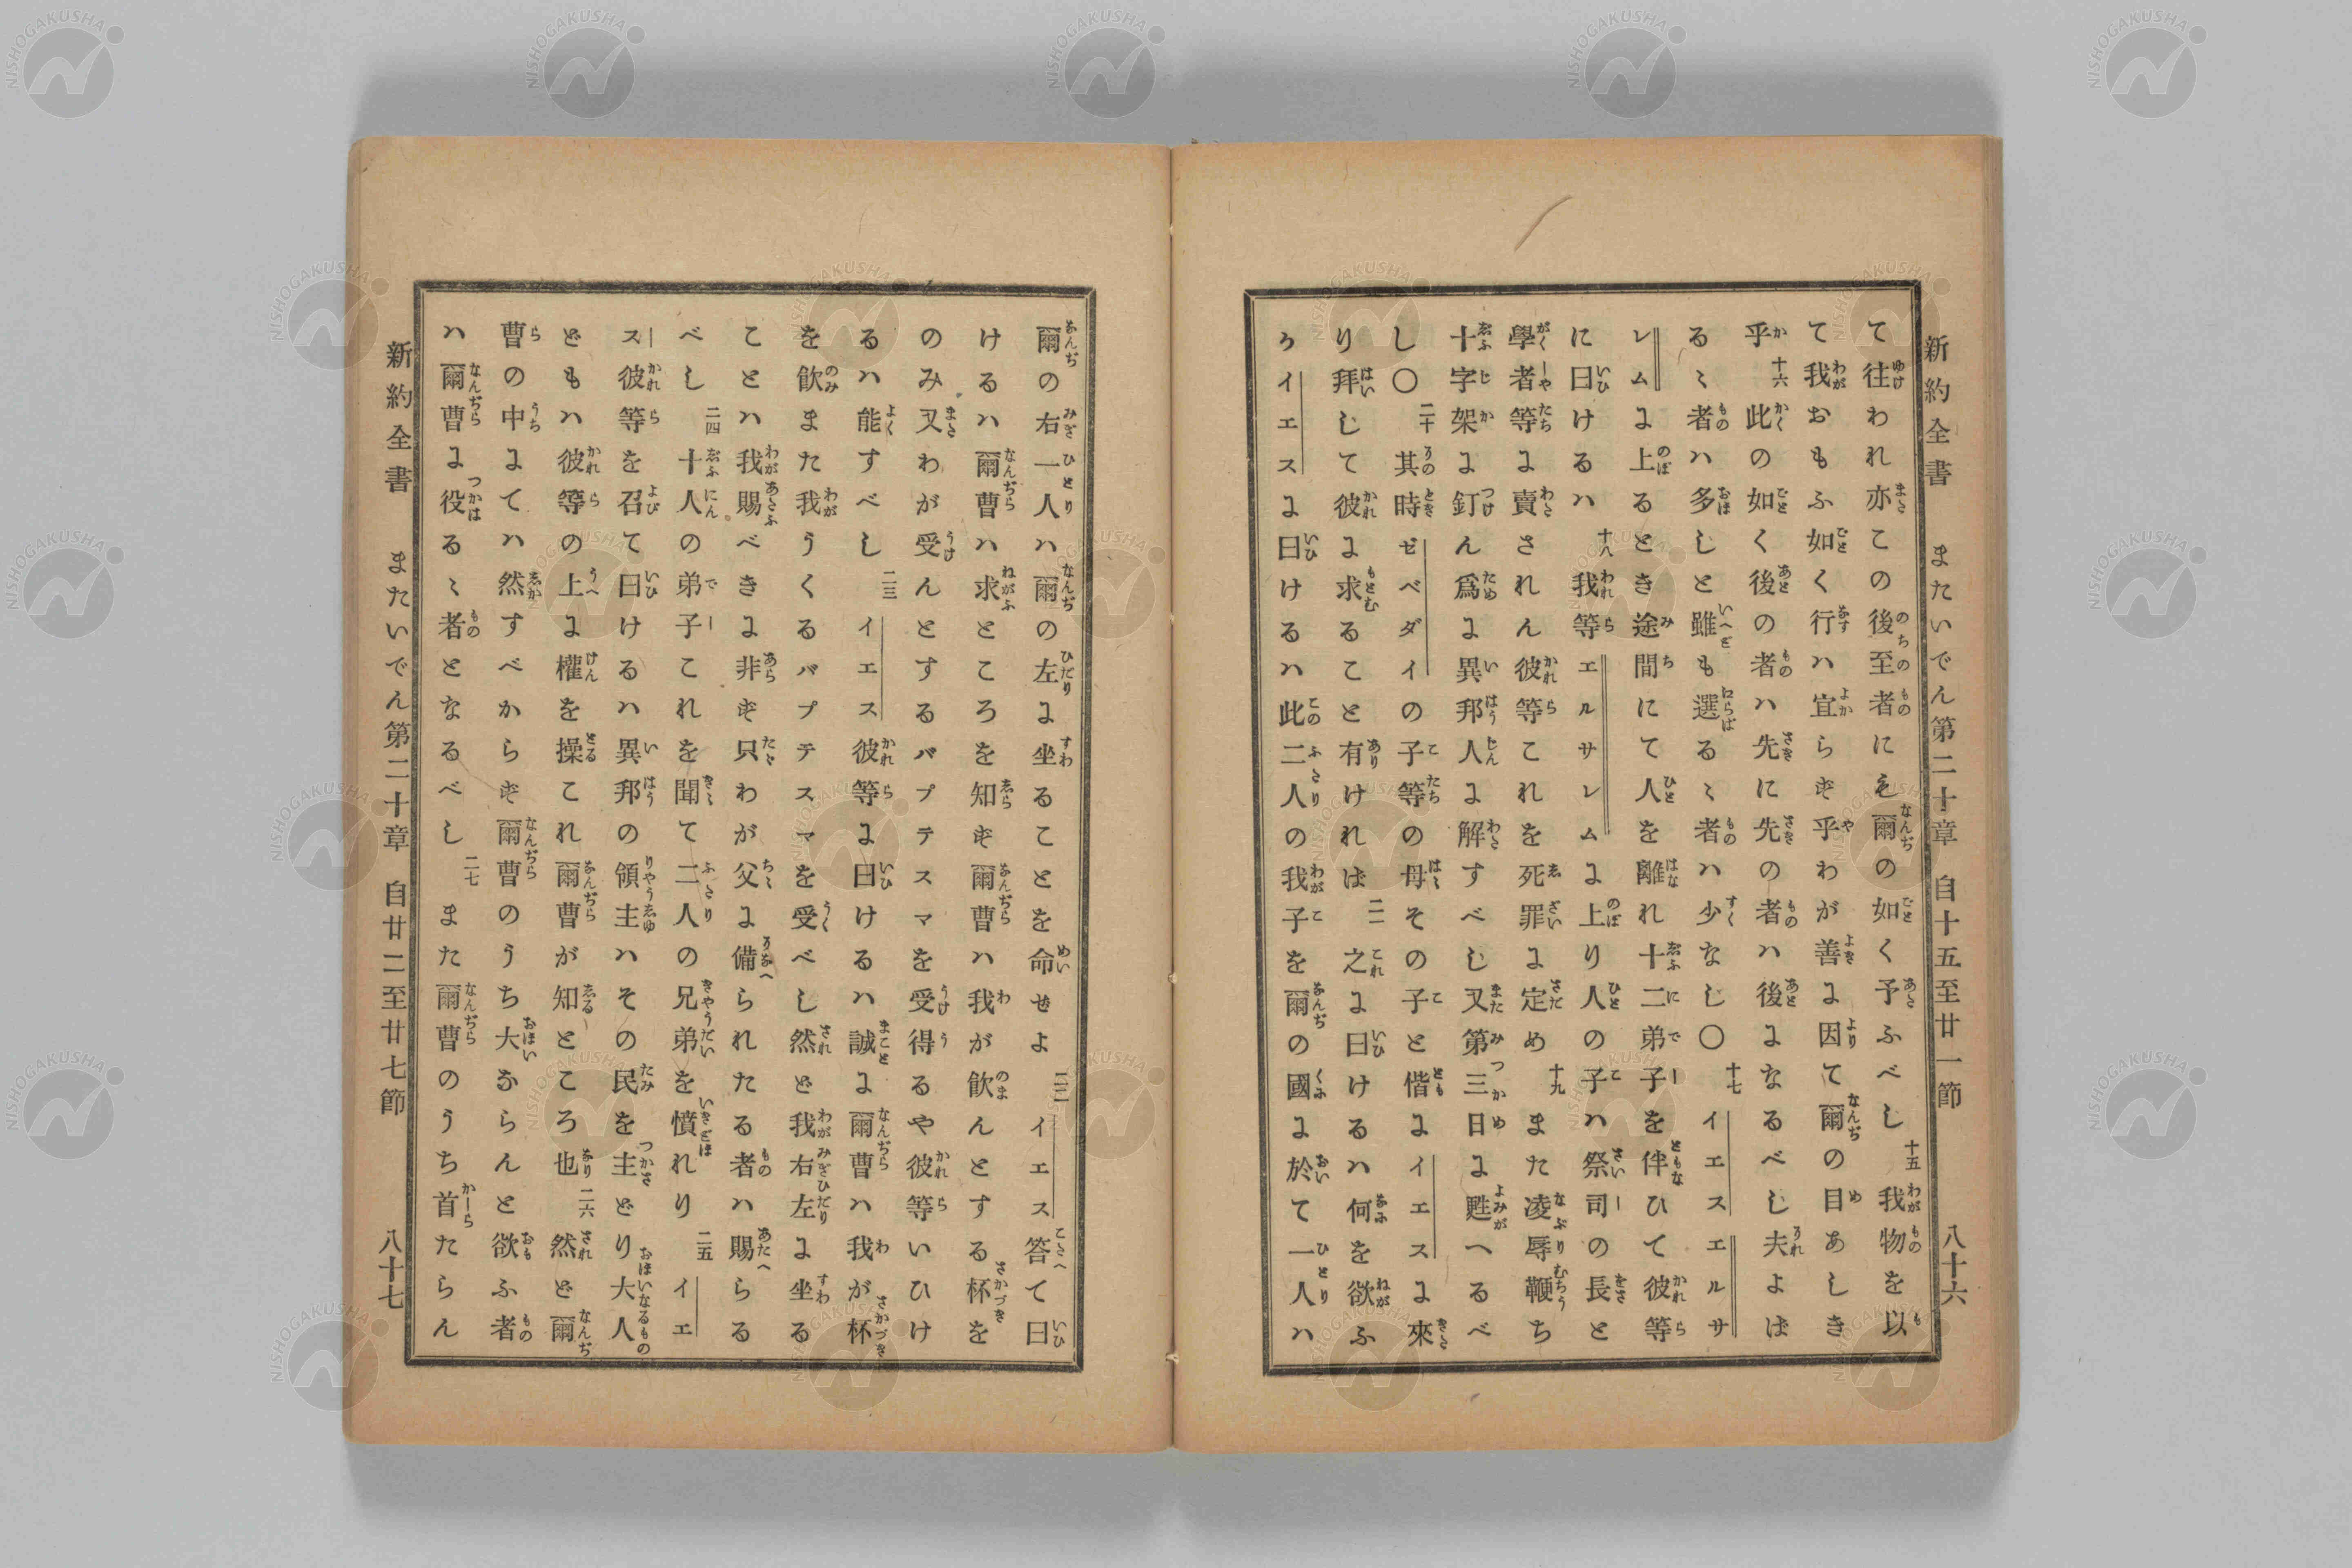 新約全書 またいでん第二十章 自十五至廿一節 八十六
て往われ亦この後至者にも爾の如く予ふべし 十五 我物を以
て我おもふ如く行ハ宜らず乎わが善に因て爾の目あしき
乎 十六 此の如く後の者ハ先に先の者ハ後になるべし夫よば
るゝ者ハ多しと雖も選るゝ者ハ少なし〇 十七 イエスエルサ
レムに上るとき途間にて人を離れ十二弟子を伴ひて彼等
に曰けるハ 十八 我等エルサレムに上り人の子ハ祭司の長と
學者等に賣されん彼等これを死罪に定め 十九 また凌辱鞭ち
十字架に釘ん爲に異邦人に解すべし又第三日に甦へるべ
し〇 二十 其時ゼベダイの子等の母その子と偕にイエスに來
り拜して彼に求ること有ければ 二一 之に曰けるハ何を欲ふ
かイエスに曰けるハ此二人の我子を爾の國に於て一人ハ
爾の右一人ハ爾の左に坐ることを命せよ 二二 イエス答て曰
けるハ爾曹ハ求ところを知ず爾曹ハ我が飮んとする杯を
のみ又わが受んとするバプテスマを受得るや彼等いひけ
るハ能すべし 二三 イエス彼等に曰けるハ誠に爾曹ハ我が杯
を飮また我うくるバプテスマを受べし然ど我右左に坐る
ことハ我賜べきに非ず只わが父に備られたる者ハ賜らる
べし 二四 十人の弟子これを聞て二人の兄弟を憤れり 二五 イエ
ス彼等を召て曰けるハ異邦の領主ハその民を主どり大人
どもハ彼等の上に權を操これ爾曹が知ところ也 二六 然ど爾
曹の中にてハ然すべからず爾曹のうち大ならんと欲ふ者
ハ爾曹に役るゝ者となるべし 二七 また爾曹のうち首たらん
新約全書 またいでん第二十章 自廿二至廿七節 八十七
NISHOGAKUSHA